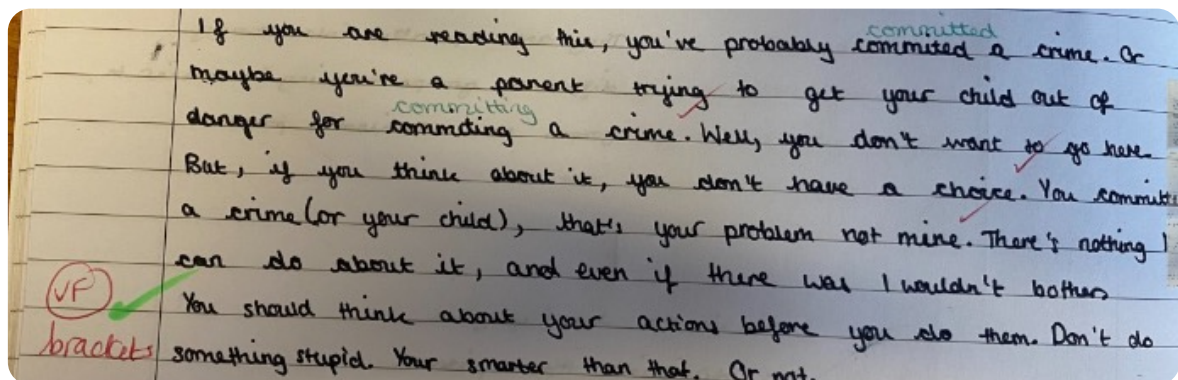 committed
If you are reading this, you've probably commuted a crime. Or
maybe you're a parent trying to get your child out of
committing
danger for commuting a crime. Well, you don't want to go here.
But, if you think about it, you don't have a choice. You
a crime (or your child), that's your problem not mine. There's nothing I
can do about it, and even if there was I wouldn't bother
VF
You should think about your actions before you do them. Don't do
brackets
something stupid. Your smarter than that. Or not.